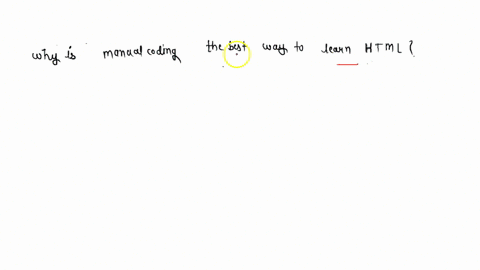 why is manual coding the best way to learn HTML?